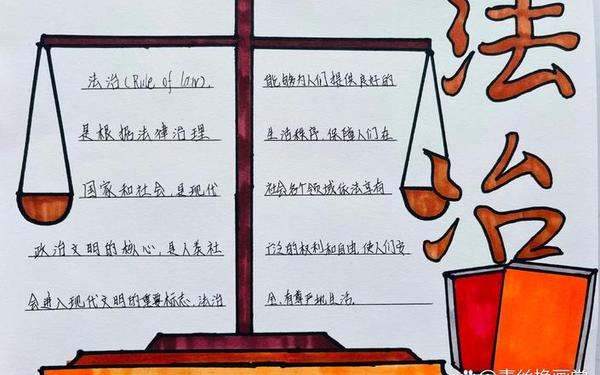 法治(Rule of law),
是根据法律治理
国家和社会,是现代
政治文明的核心,是人类社
会进入现代文明的重要标志,法治
能够为人们提供良好的
生活秩序,保障人们在
社会各个领域依法享有
广泛的权利和自由,使人们安
全、有尊严地生活。
法治